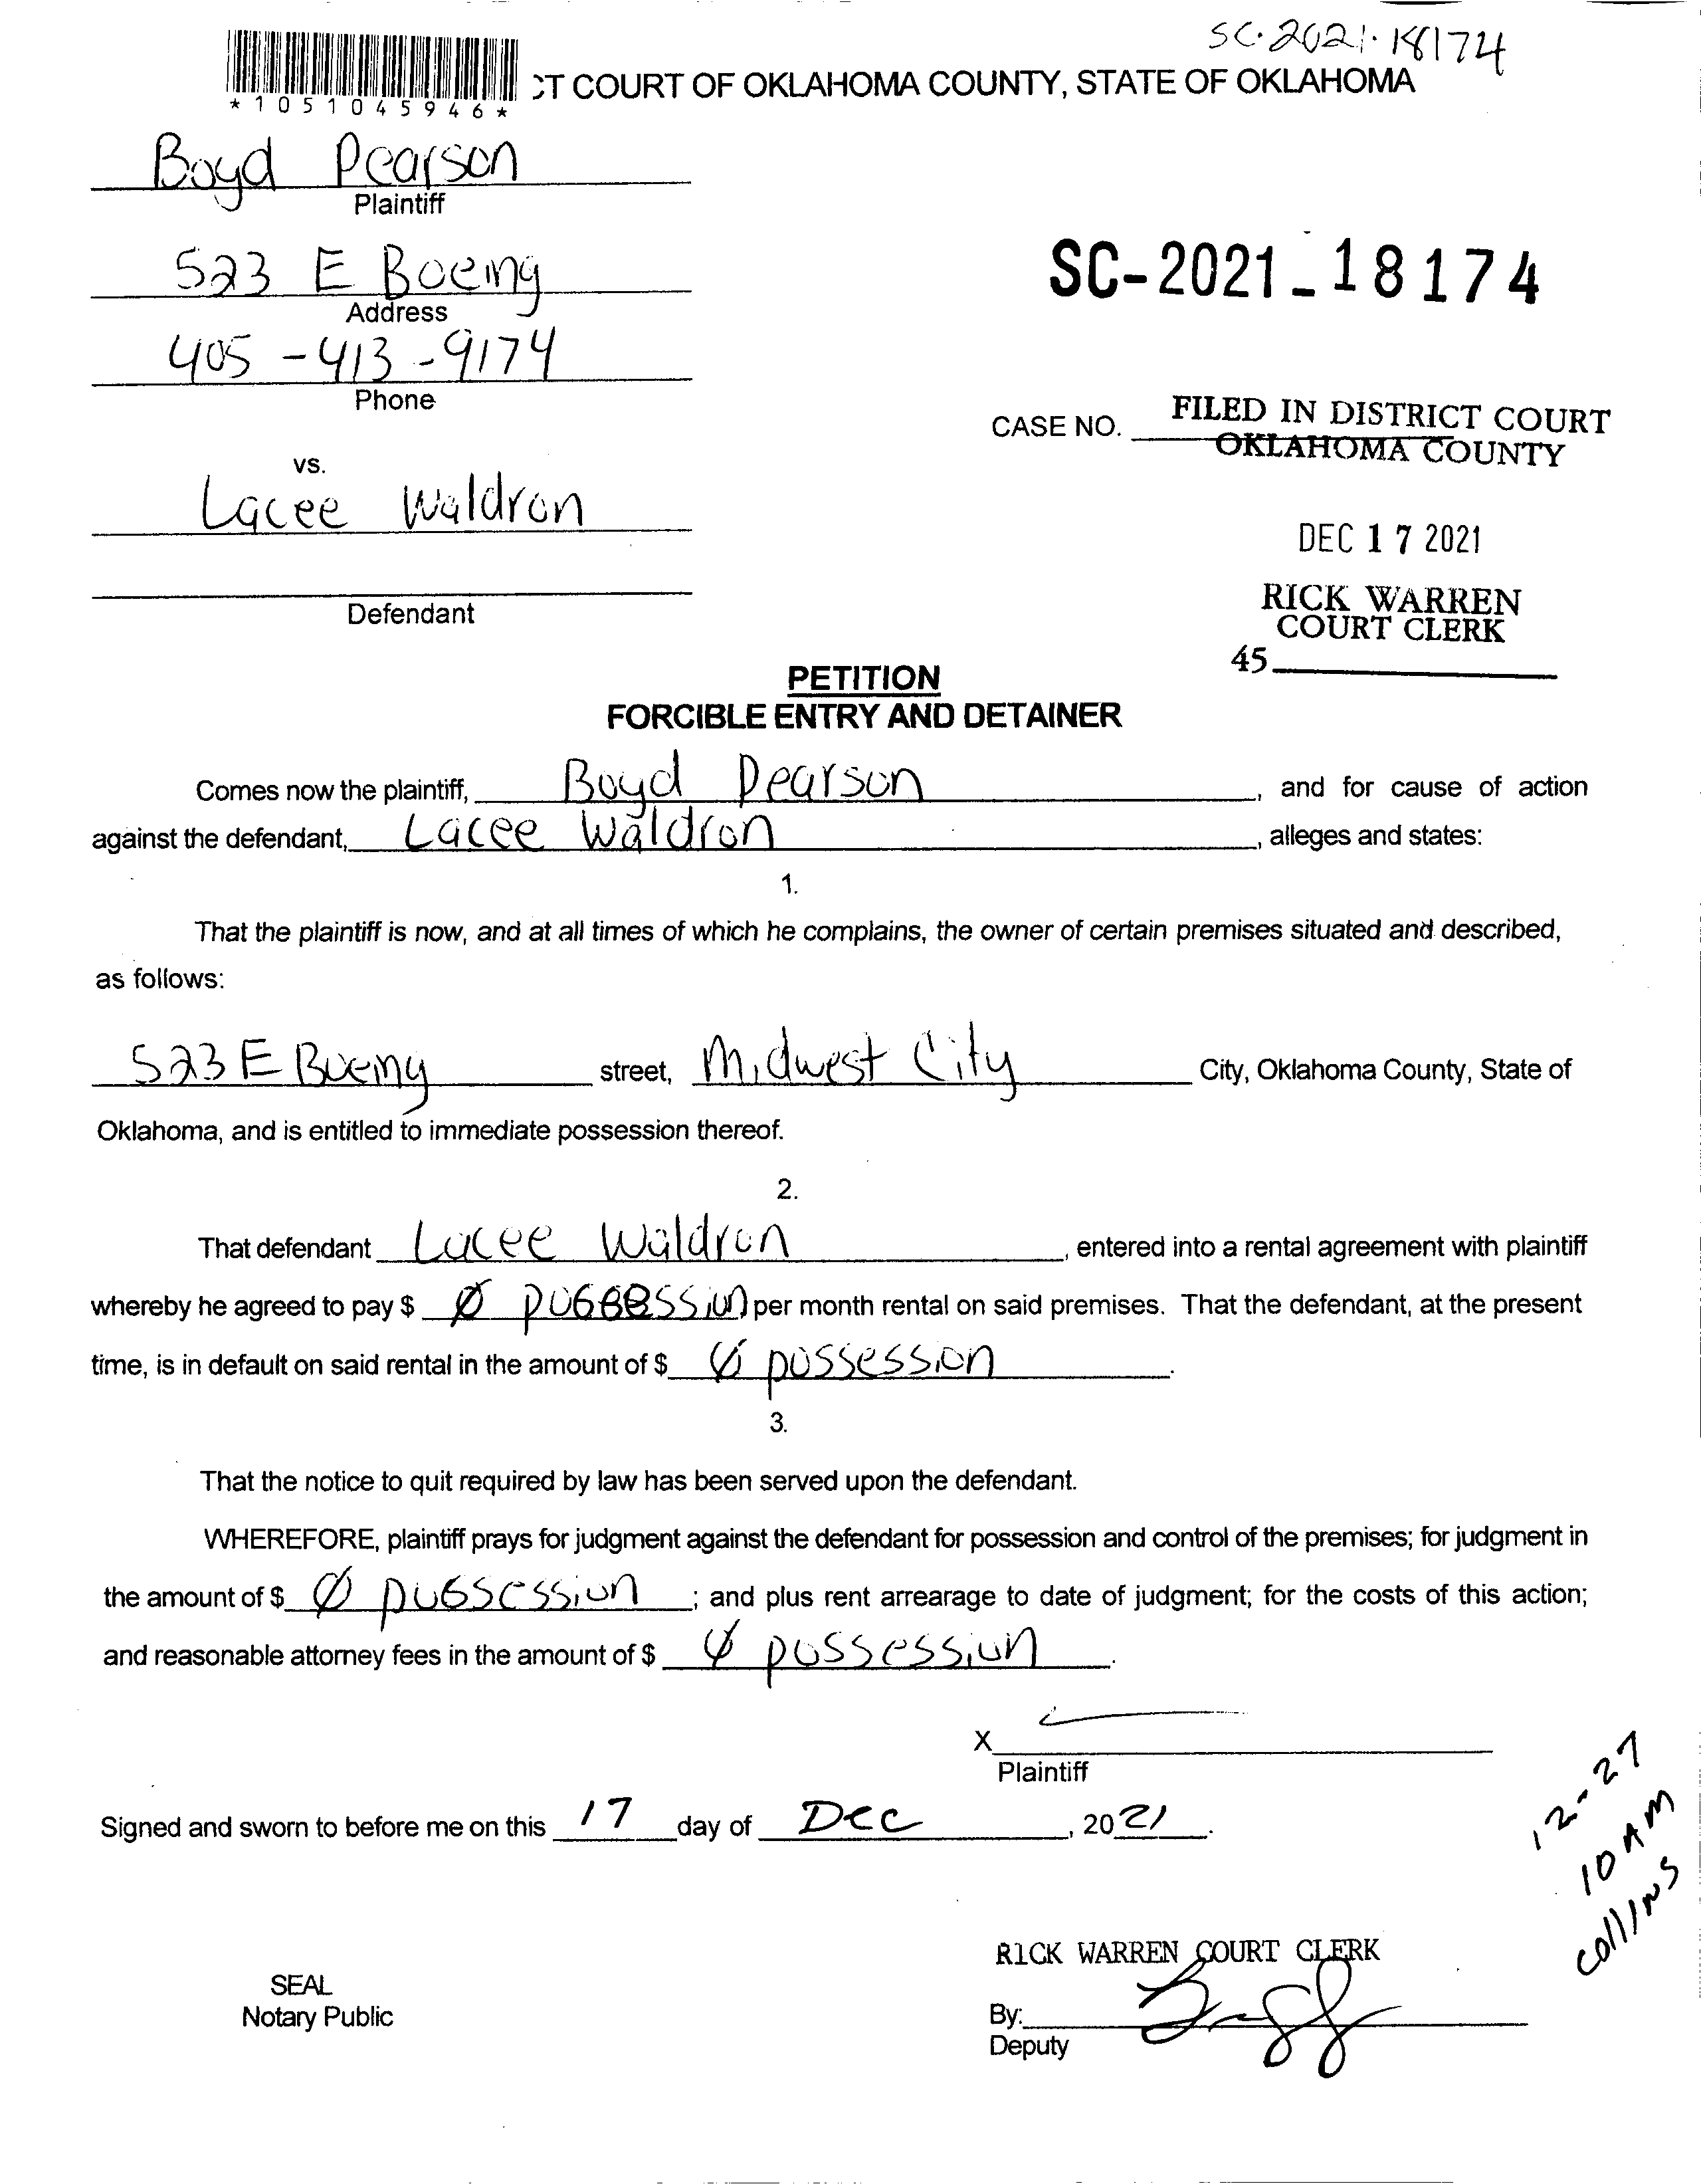 SC-2021-18174
CT COURT OF OKLAHOMA COUNTY, STATE OF OKLAHOMA
*1051045946*
Boyd Pearson
Plaintiff
523 E Boeing
Address
SC-2021-18174
405-413-9174
Phone
CASE NO.
FILED IN DISTRICT COURT
OKLAHOMA COUNTY
vs.
Lacee Waldron
DEC 17 2021
Defendant
RICK WARREN
COURT CLERK
45
PETITION
FORCIBLE ENTRY AND DETAINER
Comes now the plaintiff, Boyd Pearson, and for cause of action
against the defendant, Lacee Waldron, alleges and states:
1.
That the plaintiff is now, and at all times of which he complains, the owner of certain premises situated and described,
as follows:
523 E Boeing street, Midwest City City, Oklahoma County, State of
Oklahoma, and is entitled to immediate possession thereof.
2.
That defendant Lacee Waldron, entered into a rental agreement with plaintiff
whereby he agreed to pay $ Ø possession per month rental on said premises. That the defendant, at the present
time, is in default on said rental in the amount of $ Ø possession.
3.
That the notice to quit required by law has been served upon the defendant.
WHEREFORE, plaintiff prays for judgment against the defendant for possession and control of the premises; for judgment in
the amount of $ Ø possession; and plus rent arrearage to date of judgment; for the costs of this action;
and reasonable attorney fees in the amount of $ Ø possession.
X
Plaintiff
Signed and sworn to before me on this 17 day of Dec, 2021.
12-27
10 AM
Collins
RICK WARREN COURT CLERK
SEAL
Notary Public
By:
Deputy